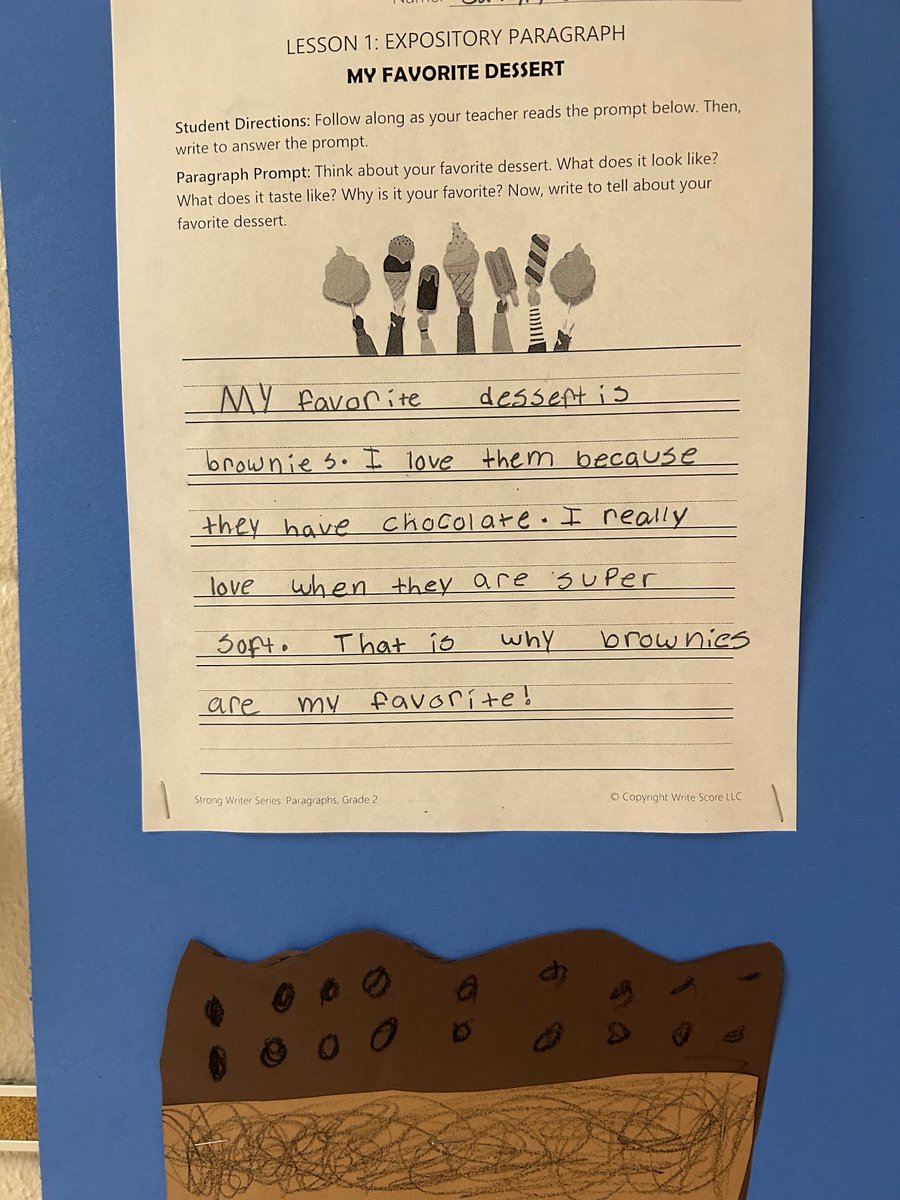 Name:
LESSON 1: EXPOSITORY PARAGRAPH
MY FAVORITE DESSERT
Student Directions: Follow along as your teacher reads the prompt below. Then,
write to answer the prompt.
Paragraph Prompt: Think about your favorite dessert. What does it look like?
What does it taste like? Why is it your favorite? Now, write to tell about your
favorite dessert.
My favorite dessert is
brownies. I love them because
they have chocolate. I really
love when they are super
soft. That is why brownies
are my favorite!
Strong Writer Series: Paragraphs, Grade 2
© Copyright Write Score LLC